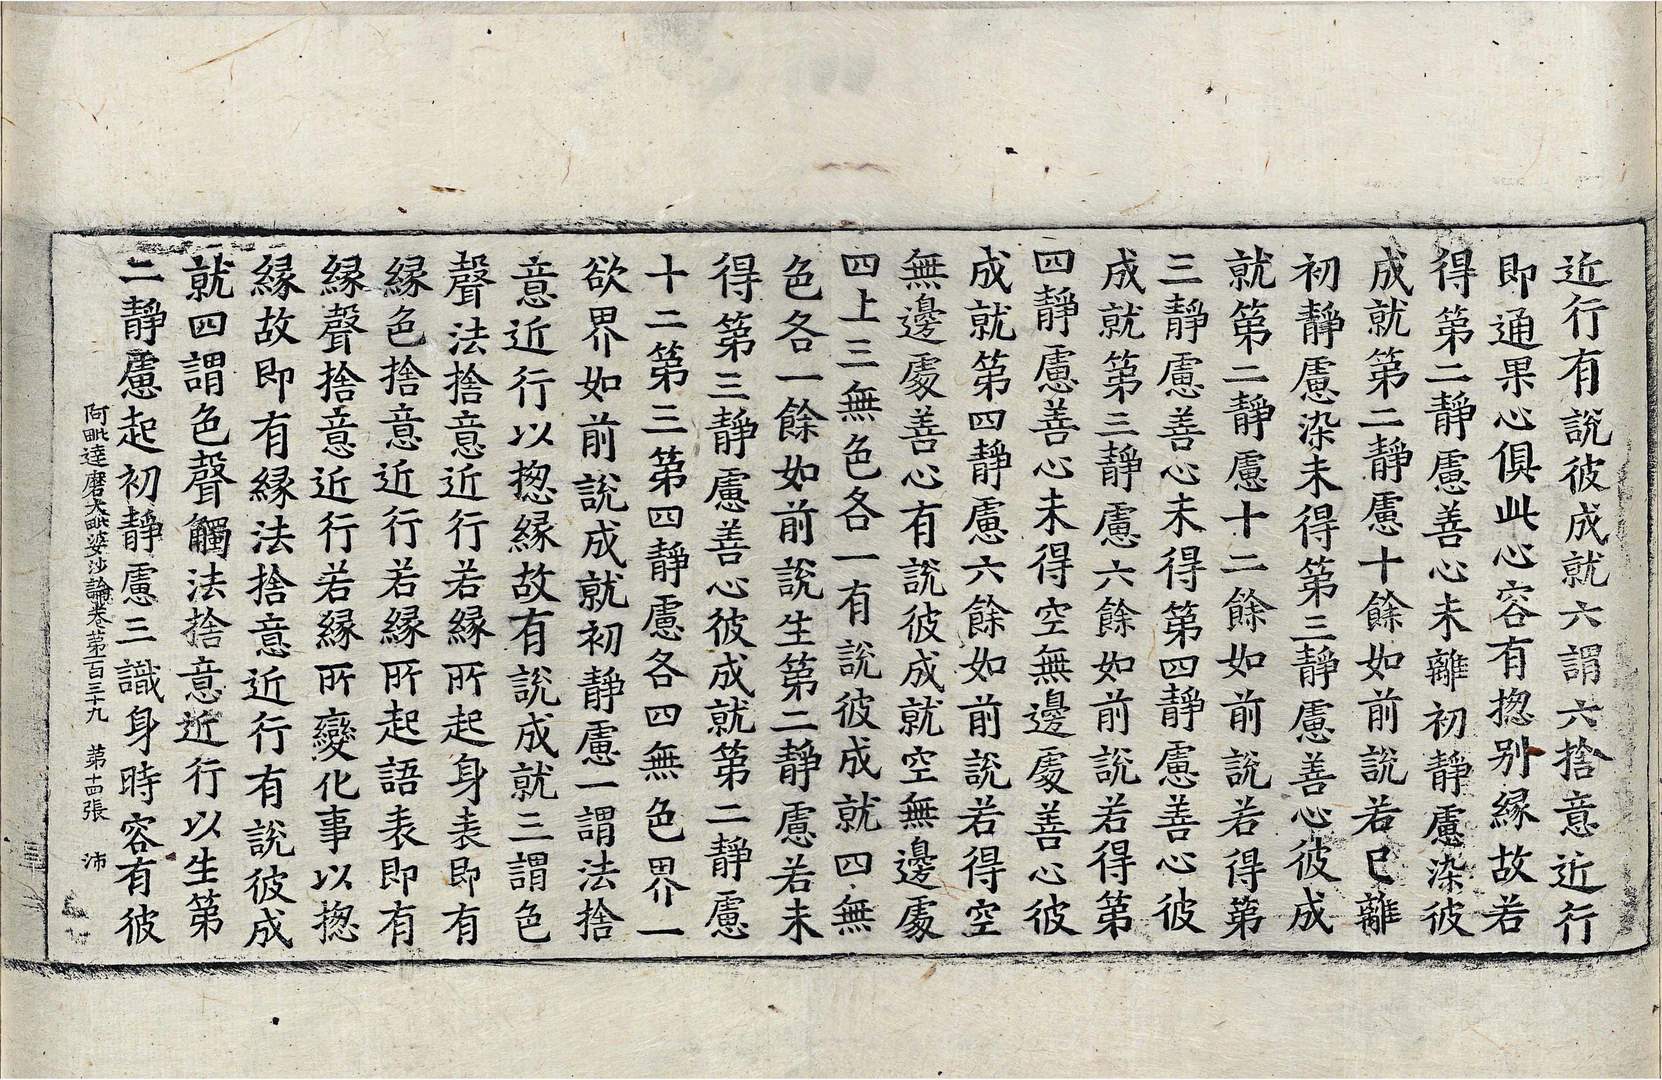 近行有說彼成就六謂六捨意近行
即通果心俱此心容有揔別緣故若
得第二靜慮善心未離初靜慮染彼
成就第二靜慮十餘如前說若已離
初靜慮染未得第三靜慮善心彼成
就第二靜慮十二餘如前說若得第
三靜慮善心未得第四靜慮善心彼
成就第三靜慮六餘如前說若得第
四靜慮善心未得空無邊處善心彼
成就第四靜慮六餘如前說若得空
無邊處善心有說彼成就空無邊處
四上三無色各一有說彼成就四無
色各一餘如前說生第二靜慮若未
得第三靜慮善心彼成就第二靜慮
十二第三第四靜慮各四無色界一
欲界如前說成就初靜慮一謂法捨
意近行以揔緣故有說成就三謂色
聲法捨意近行若緣所起身表即有
緣色捨意近行若緣所起語表即有
緣聲捨意近行若緣所變化事以揔
緣故即有緣法捨意近行有說彼成
就四謂色聲觸法捨意近行以生第
二靜慮起初靜慮三識身時容有彼
阿毗達磨大毗婆沙論卷第一百三十九 第十四張 沛